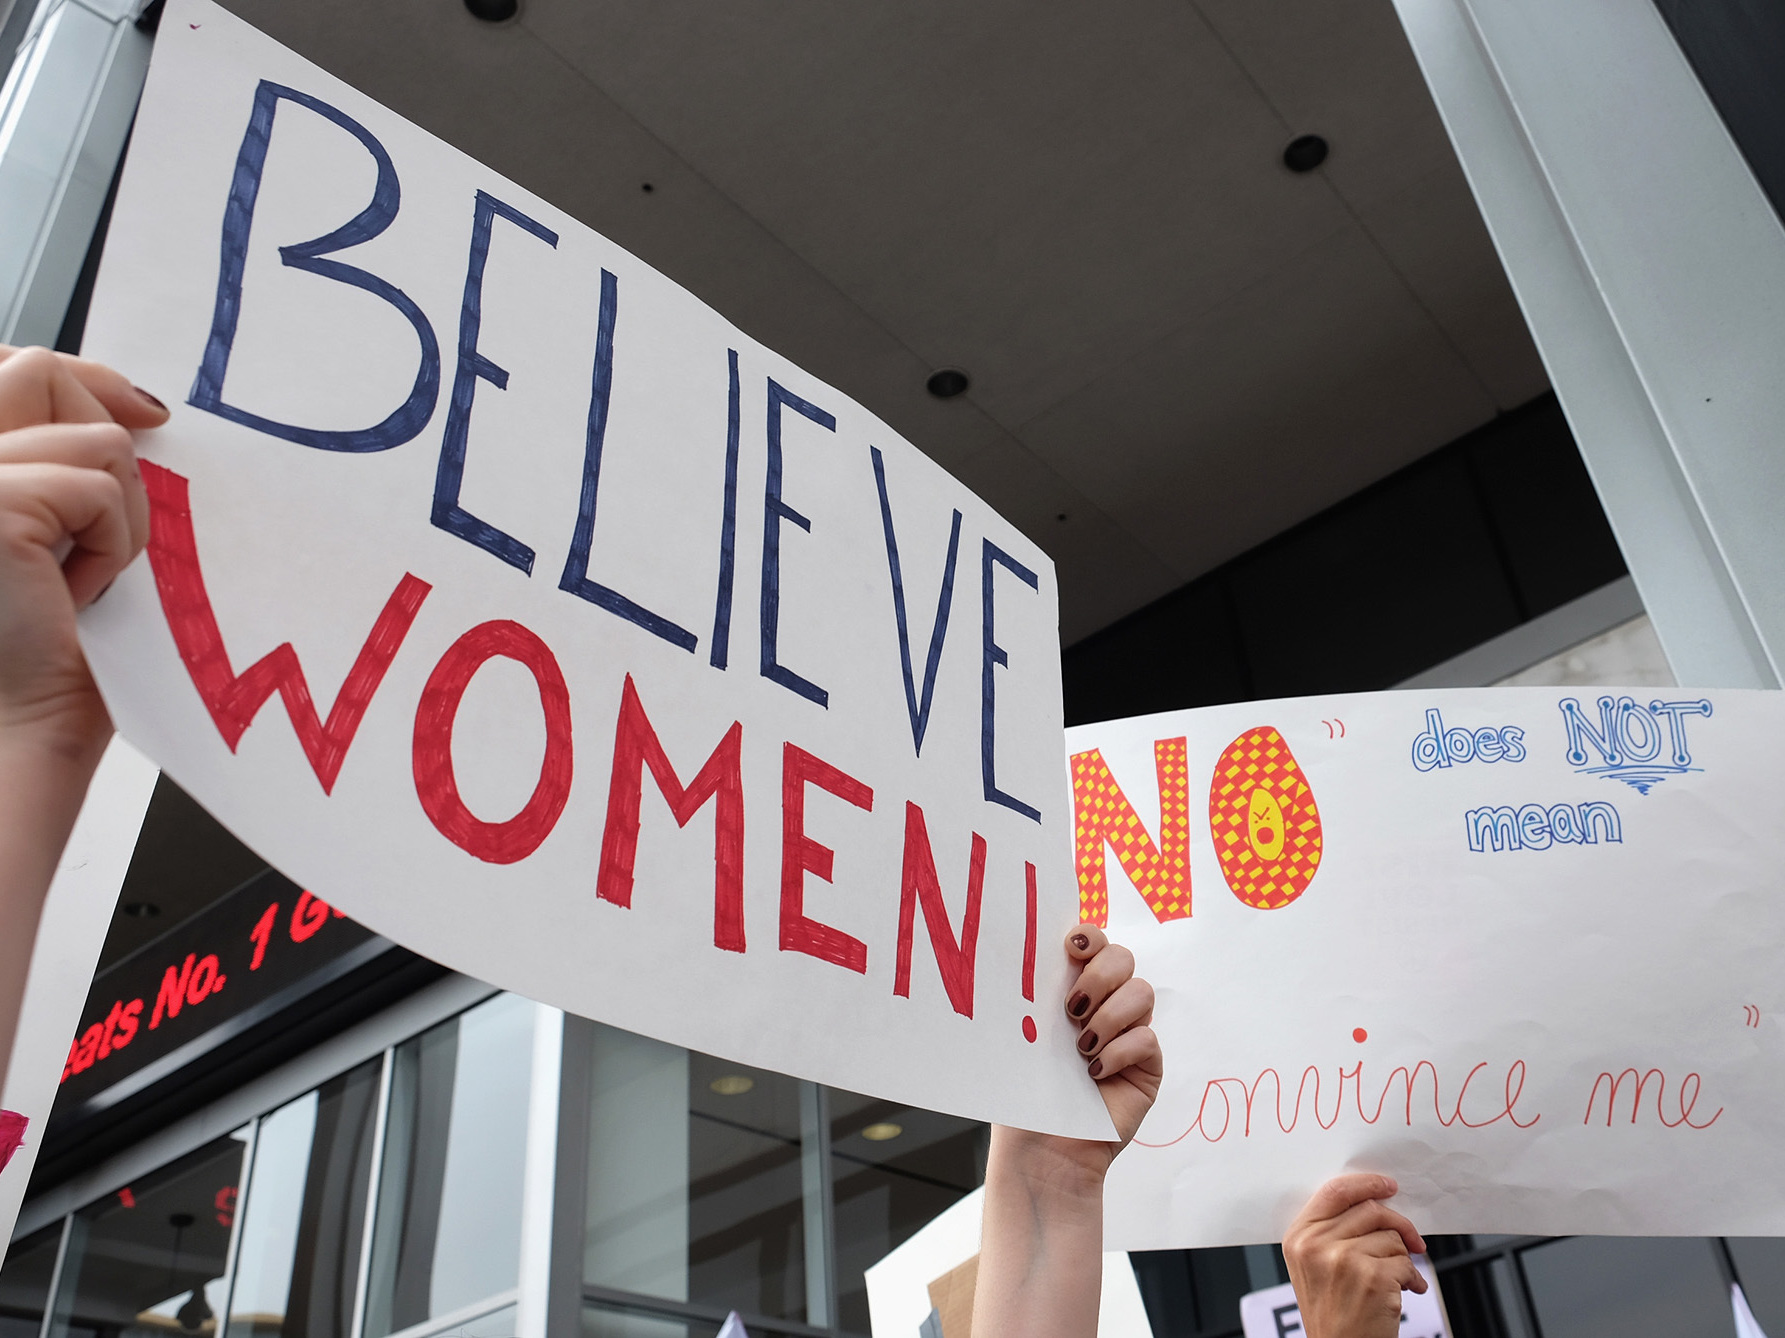 BELIEVE
WOMEN!
NO” does NOT
mean
”
onvince me
eats No. 1 G